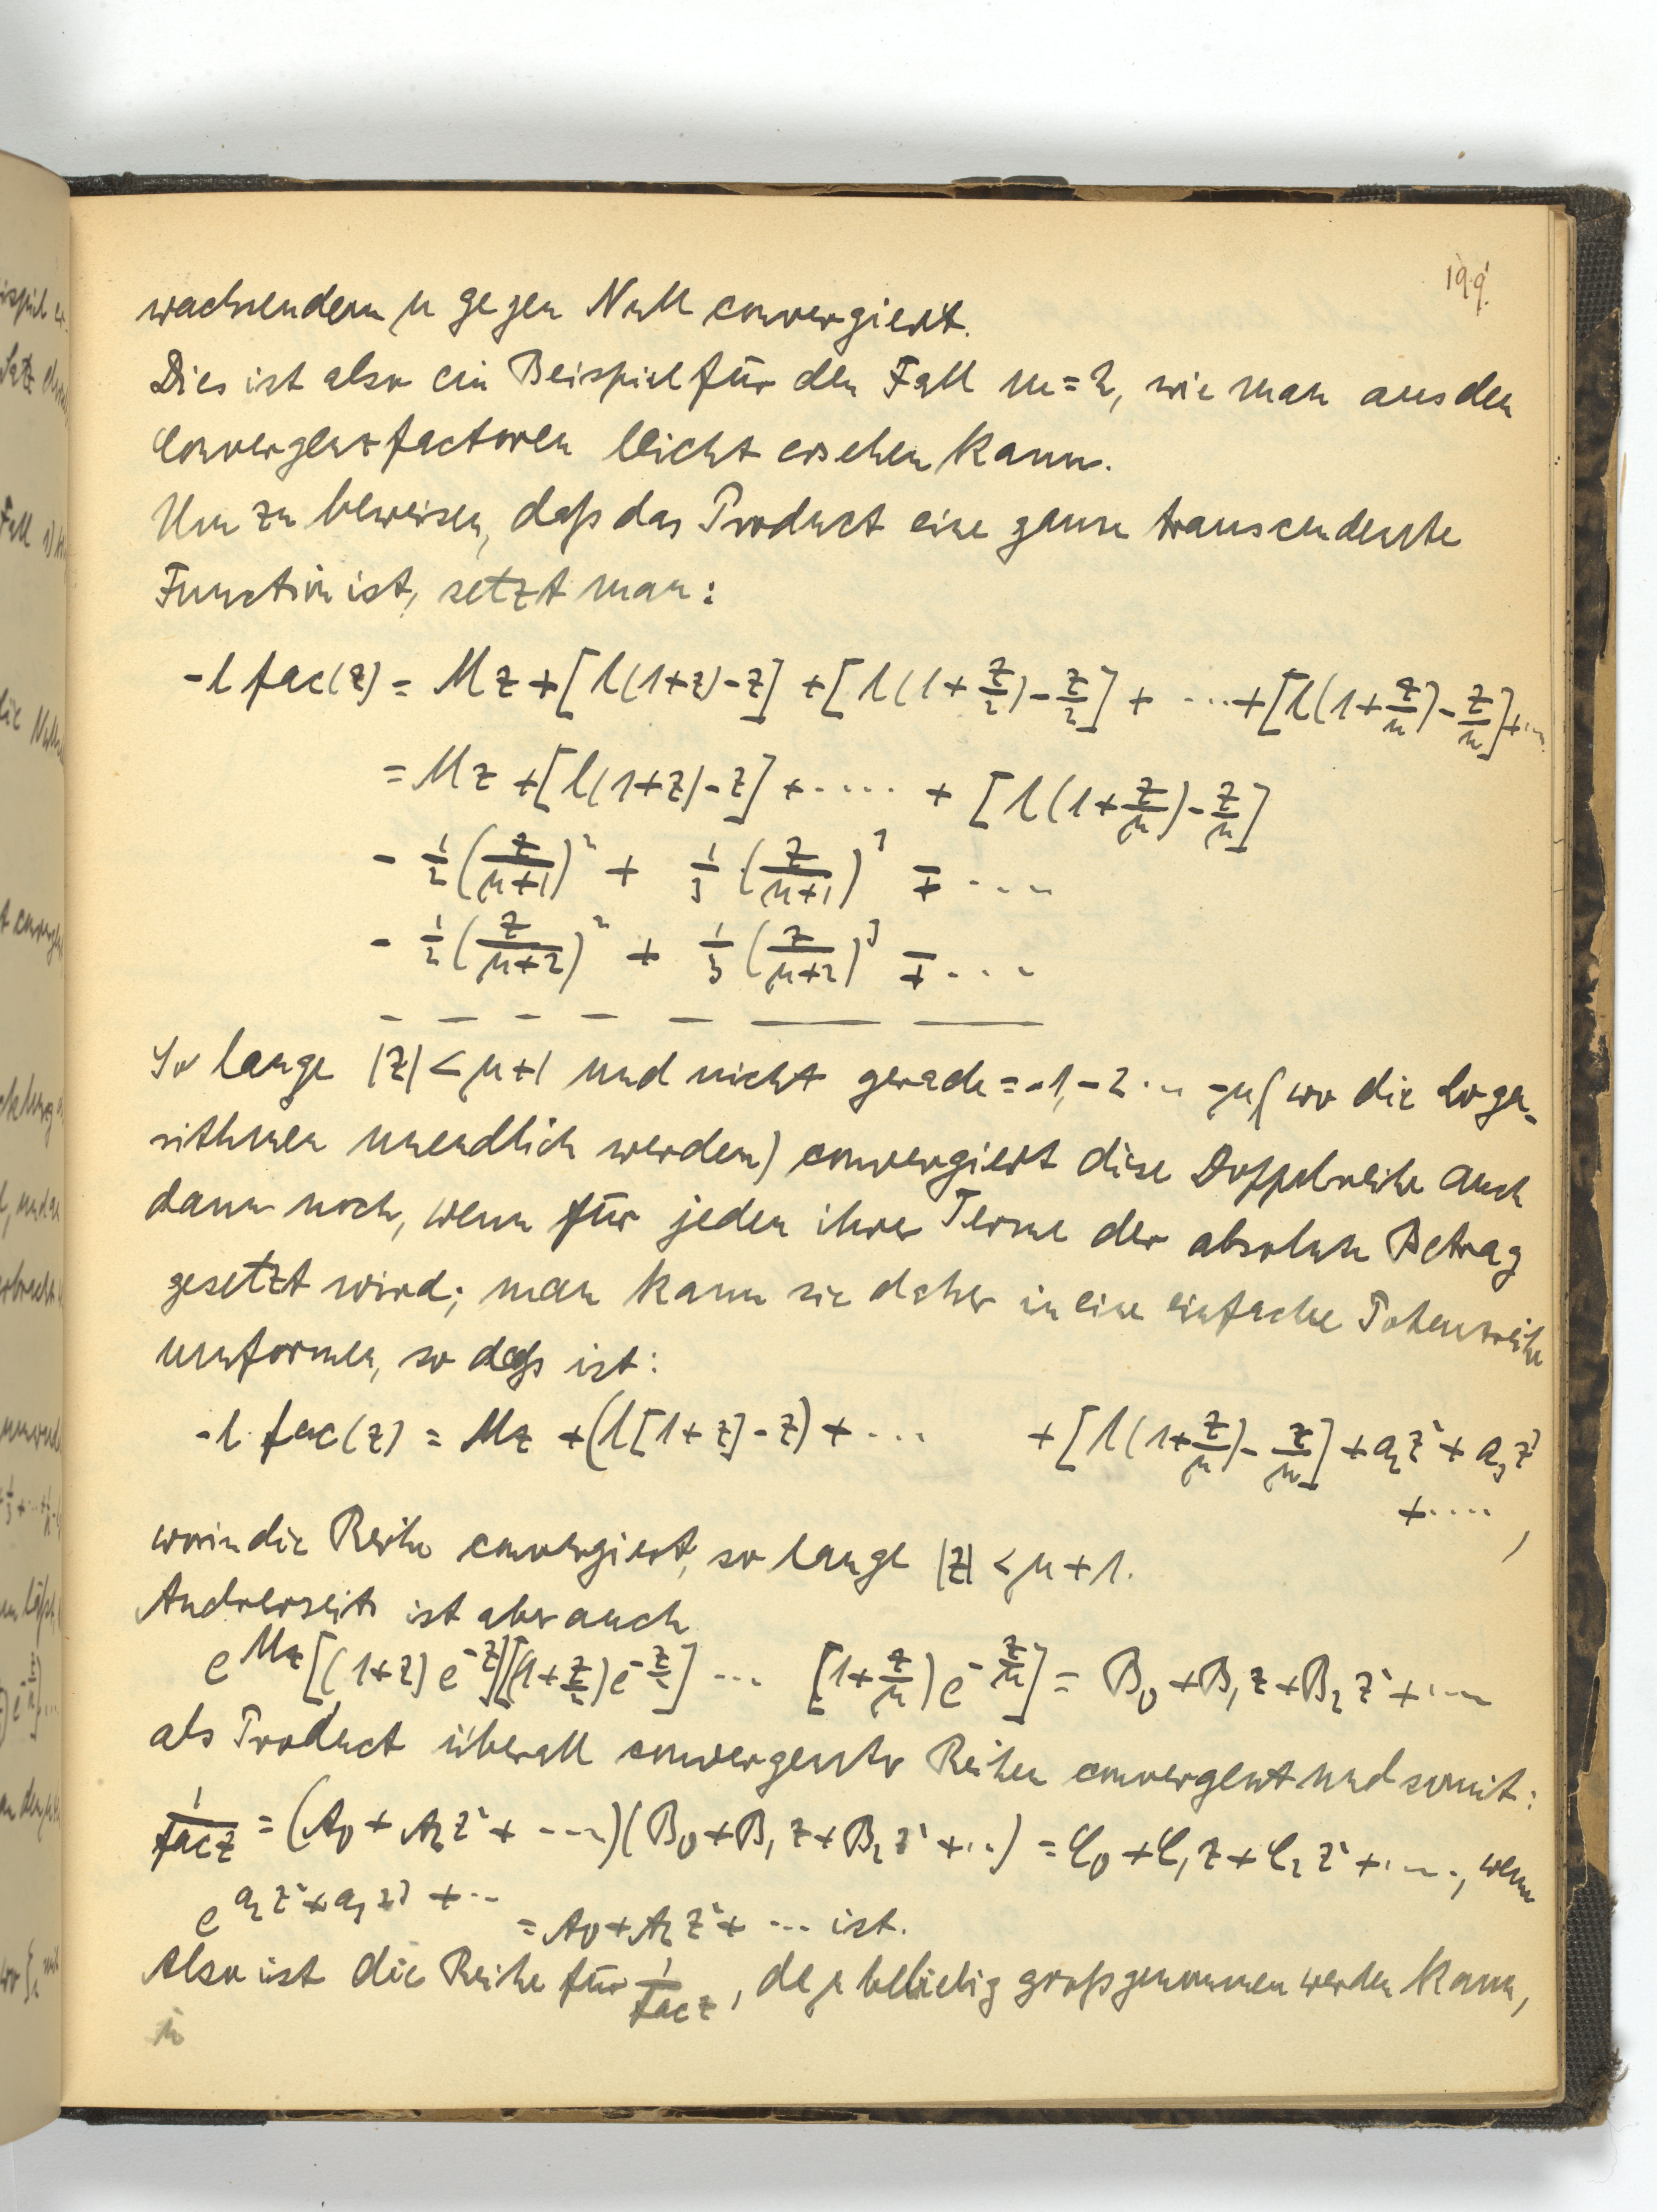 199.
wachsendem μ gegen Null convergiert.
Dies ist also ein Beispiel für den Fall m=2, wie man aus den
Convergenzfactoren leicht ersehen kann.
Um zu beweisen, daß das Product eine ganze transcendente
Function ist, setzt man:
-l fac(z) = Mz + [l(1+z)-z] + [l(1+z/2)-z/2] + ... + [l(1+z/n)-z/n] + ...
= Mz + [l(1+z)-z] + ..... + [l(1+z/μ)-z/μ]
- 1/2 (z/(μ+1))² + 1/3 (z/(μ+1))³ ∓ ....
- 1/2 (z/(μ+2))² + 1/3 (z/(μ+2))³ ∓ ....
So lange |z| < μ+1 und nicht gerade = -1, -2 ... -μ (wo die Loga-
rithmen unendlich werden) convergiert diese Doppelreihe auch
dann noch, wenn für jeden ihrer Terme der absolute Betrag
gesetzt wird; man kann sie daher in eine einfache Potenzreihe
umformen, so daß ist:
-l fac(z) = Mz + (l[1+z]-z) + ... + [l(1+z/μ)-z/μ] + a₂z² + a₃z³
+ .... ,
worin die Reihe convergiert, so lange |z| < μ+1.
Andrerseits ist aber auch
e^{Mz} [(1+z)e^{-z}][(1+z/2)e^{-z/2}] ... [1+z/μ)e^{-z/μ}] = B₀ + B₁z + B₂z² + ....
als Product überall convergenter Reihen convergent und somit:
1/fac z = (A₀ + A₂z² + ....)(B₀ + B₁z + B₂z² + ..) = C₀ + C₁z + C₂z² + ...., wenn
e^{a₂z² + a₃z³ + ...} = A₀ + A₂z² + ... ist.
Also ist die Reihe für 1/fac z, da μ beliebig groß genommen werden kann,